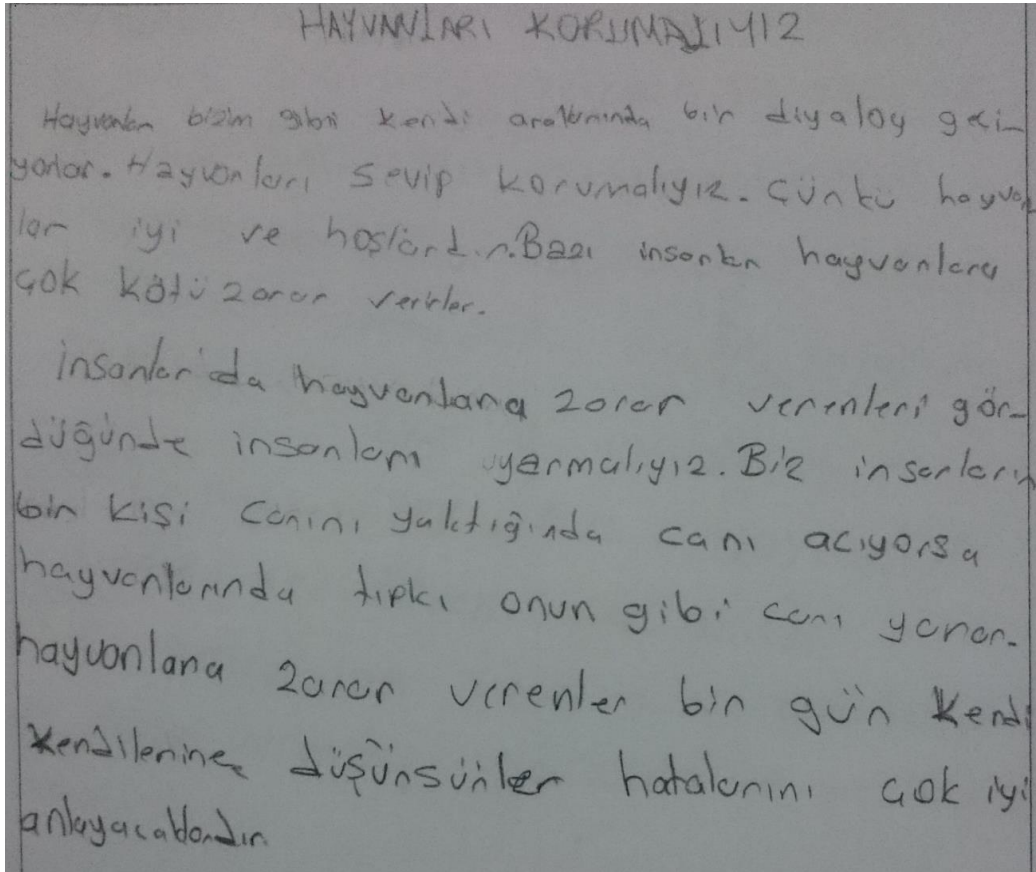 HAYVANLARI KORUMALIYIZ
Hayvanlar bizim gibi kendi aralarında bir diyalog geçi-
yorlar. Hayvanları sevip korumalıyız. Çünkü hayvan
lar iyi ve hoşlardır. Bazı insanlar hayvanlara
çok kötü zarar verirler.
İnsanlar'da hayvanlara zarar verenleri gör-
düğünde insanları uyarmalıyız. Biz insanların
bir kişi canını yaktığında canı acıyorsa
hayvanlarında tıpkı onun gibi canı yanar.
hayvanlara zarar verenler bir gün kendi
kendilerine düşünsünler hatalarını çok iyi
anlayacaklardır.